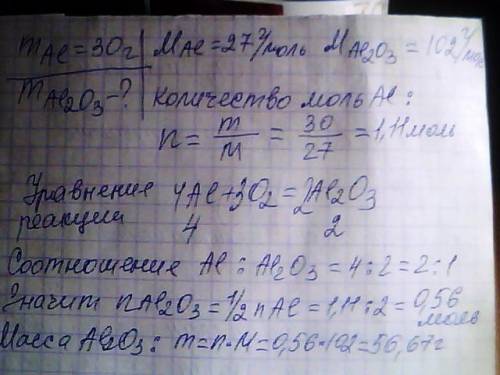 mAl=30г | MAl=27 г/моль MAl₂O₃=102 г/моль
mAl₂O₃-? количество моль Al:
n= m/M = 30/27 =1,11моль
Уравнение реакции 4Al+3O₂=2Al₂O₃
4 2
Соотношение Al:Al₂O₃=4:2=2:1
Значит nAl₂O₃=1/2 nAl=1,11:2=0,56 моль
Масса Al₂O₃: m=n·M=0,56·102=56,67г